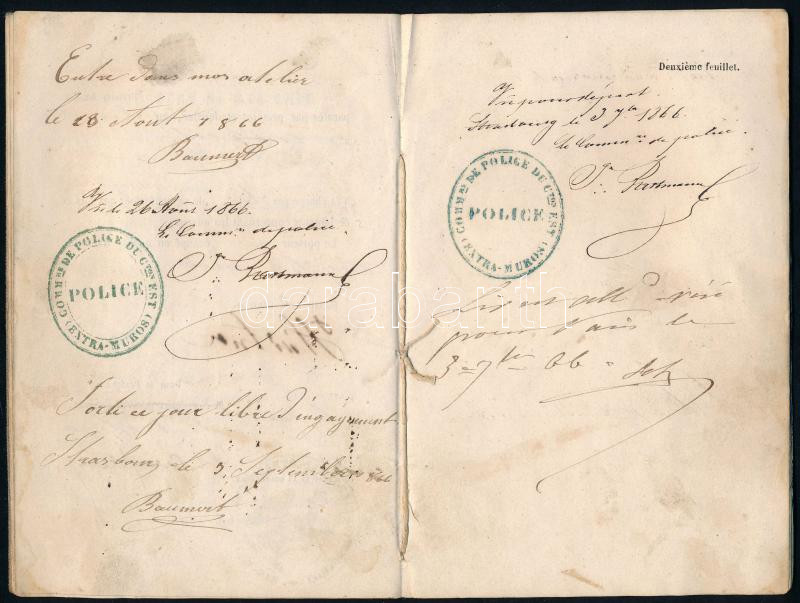 Entre dans mes atelier
le 18 Aout 1866
Baumert
Vu le 26 Août 1866.
Le Commre de police.
COMMRE DE POLICE DU CTON EST
POLICE
(EXTRA-MUROS)
Sorti ce jour libre d'engagement
Strasbourg le 3 Septembre 1866
Baumert
Deuxième feuillet.
Vu pour départ.
Strasbourg le 3 7bre 1866.
Le Commre de police.
COMMRE DE POLICE DU CTON EST
POLICE
(EXTRA-MUROS)
visé
pour le
3 = 7bre 66 =
darabanth